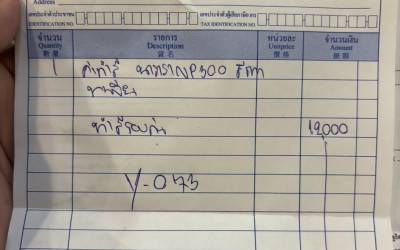 Address
เลขประจำตัวประชาชน
IDENTIFICATION NO.
เลขประจำตัวผู้เสียภาษีอากร
TAX IDENTIFICATION NO.
จำนวน รายการ หน่วยละ จำนวนเงิน
Quantity Description Unitprice Amount
數量 貨名 價格 銀額
1 ค่าทำสี
ทำสีรอบคัน 12,000
Y-073